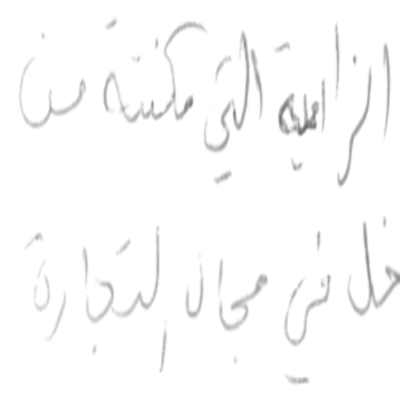 الزامية التي مكنته من
خل في مجال التجارة